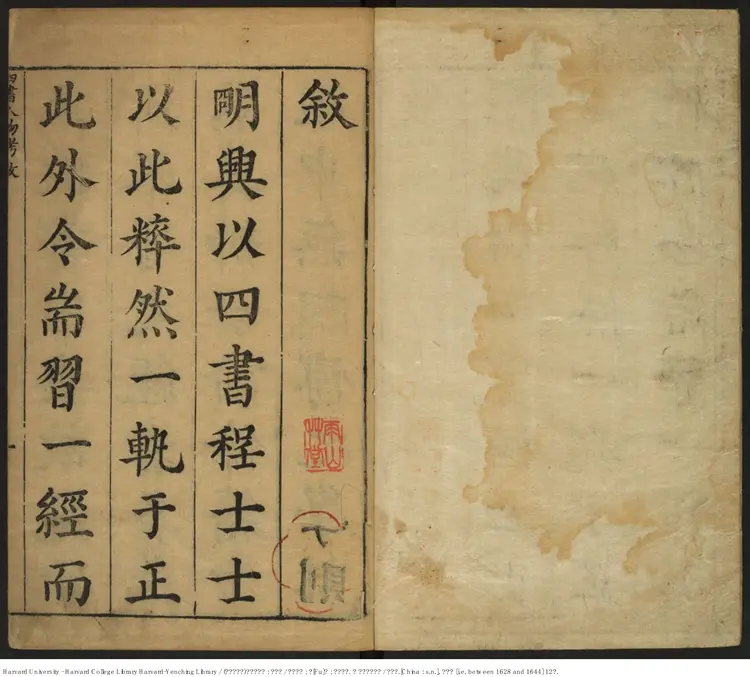 敘
明興以四書程士士
以此粹然一軌于正
此外令耑習一經而
四書人物考敘
雨山草堂
Harvard University - Harvard College Library Harvard-Yenching Library / (?????)????? : ??? / ???? ; ?[Fu]? ; ????. ? ?????? / ???.[China : s.n.], ??? [i.e. between 1628 and 1644] 12?.